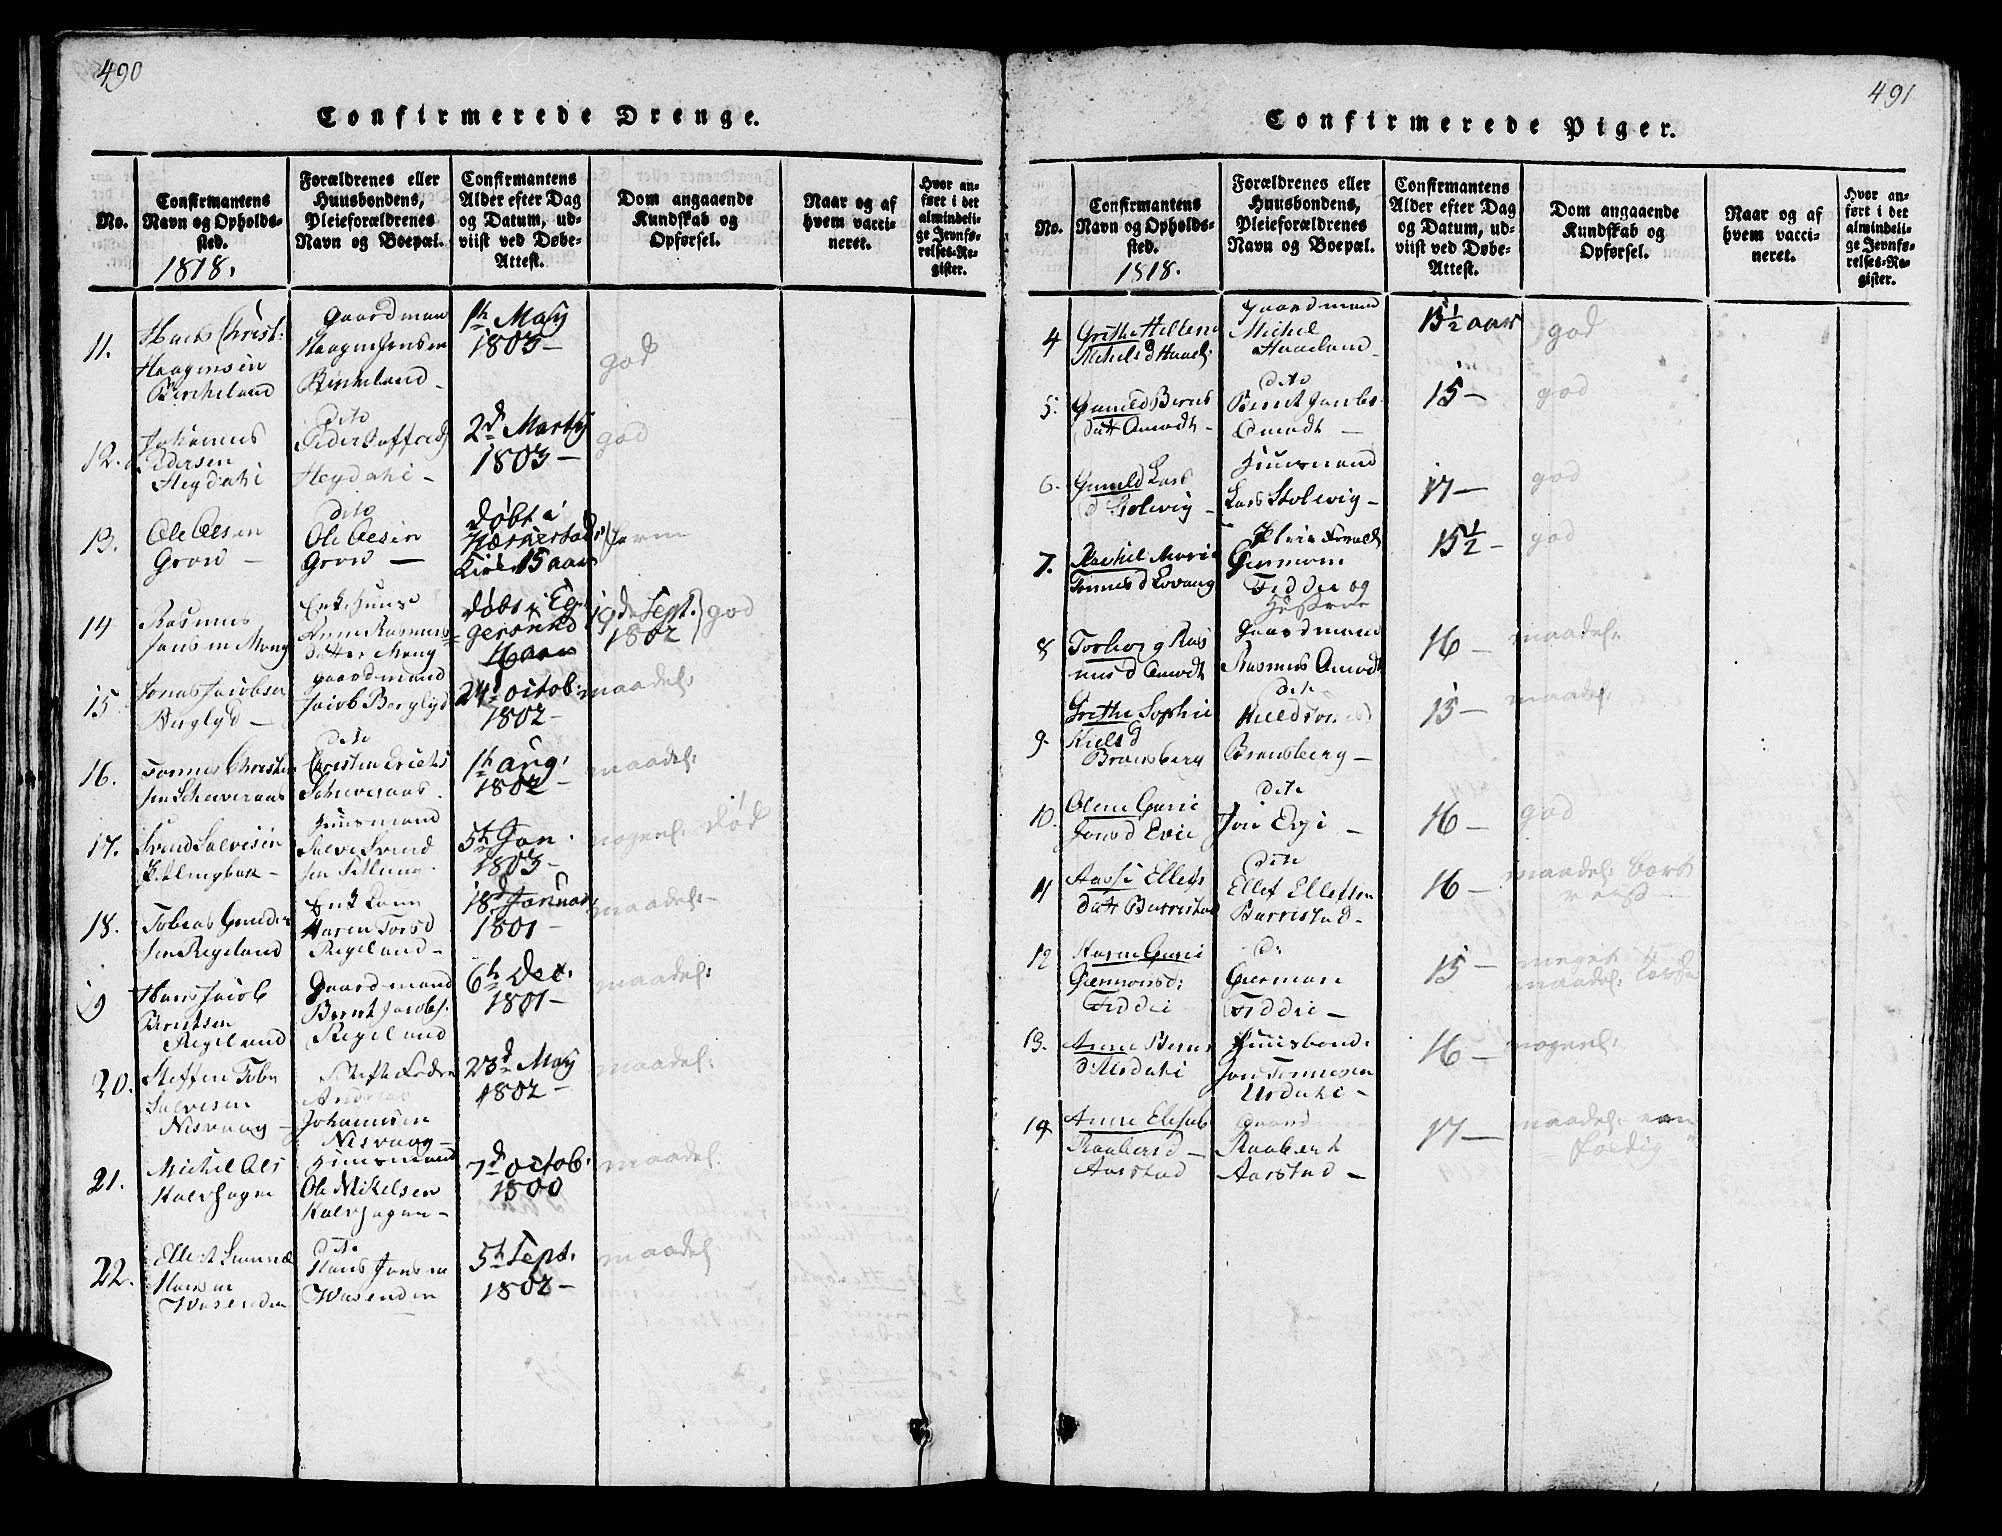 490
Confirmerede Drenge.
No.
Confirmantens
Navn og Opholds-
sted.
1818.
Forældrenes eller
Huusbondens,
Pleieforældrenes
Navn og Boepæl.
Confirmantens
Alder efter Dag
og Datum, ud-
viist ved Døbe-
Attest.
Dom angaaende
Kundskab og
Opførsel.
Naar og af
hvem vacci-
neret.
Hvor an-
ført i det
almindeli-
ge Jevnfø-
relses-Re-
gister.
11.
Christ:
Haagensen
Birkeland
Gaardman
Haagen Jensen
Birkeland
1th Maÿ
1803 –
god
12.
Johannes
Pedersen
Heÿdahl
dito
Peder
Heÿdahl –
2d Martÿ
1803 –
god
13.
Ole Olesen
Grov –
dito
Ole Olesen
Grov –
døbt i
15 aar
14
Rasmus
Jansen Mong
Enke
Anne Rasmus
datter Mong
døbt i Eg
gersund
16 aar
19de Sept.
1802
god
15
Jonas Jacobsen
Berglyd –
gaardmand
Jacob Berglyd
24d octob:
1802 –
maadel:
16.
Tønnes Christen
sen
dito
Christen Erichs
1th aug.
1802 –
maadel:
17.
Svend Salvesen
Huusmand
Salve Svend
sen
5th Jan.
1803 –
nogenl: død
18.
Tobias Gunder
sen Regeland
Enke
Karen Torsd
Regeland –
18d Januar
1801 –
maadel:
19
Hans Jacob
Berntsen
Regeland
Gaardmand
Bernt Jacobs.
Regeland
6th Dec.
1801 –
maadel:
20.
Steffen Tobi
Salvesen
Nisvaag –
Andreas
Johannesen
Nisvaag –
23d Maÿ
1802 –
maadel:
21.
Michel Ols
Kalvhagen
Huusmand
Ole Mikelsen
Kalvhagen –
7d octob:
1800
maadel.
22.
Ellert Samuel
Hansen
Wasenden
dito
Hans Jansen
Wasenden
5th Sept.
1802 –
maadel
491
Confirmerede Piger.
No.
Confirmantens
Navn og Opholds-
sted.
1818.
Forældrenes eller
Huusbondens,
Pleieforældrenes
Navn og Boepæl.
Confirmantens
Alder efter Dag
og Datum, ud-
viist ved Døbe-
Attest.
Dom angaaende
Kundskab og
Opførsel.
Naar og af
hvem vacci-
neret.
Hvor an-
ført i det
almindeli-
ge Jevnfø-
relses-Re-
gister.
4
Grethe Hellene
Michels d
Gaardmand
Michel
Haaeland
15½ aar
god
5.
Gunild Bernts
datt Aamodt –
dito
Bernt Jacobs
Aamodt –
15 –
god
6.
Gunild Lars
d Stolevig –
Huusmand
Lars Stolevig –
17 –
god
7.
Rachel Marie
Tønnes d
Pleie Foræld.
Giermon
Feddie og
15½ –
god
8
Torborg Ras
mus d Aamodt
Gaardmand
Rasmus Aamodt
16 –
maadel:
9.
Grethe Sophie
Niels d
Brondsberg
dito
Brondsberg –
15 –
maadel:
10.
Olene Gurie
Jons d Evie
dito
Jon Evje –
16 –
god
11
Aase Ellefs
datt Barrestad
dito
Ellef Ellefsen
Barrestad –
16 –
maadel: bort
reist –
12
Karen Gurie
Giermonsd:
Feddie
do
Giermon
Feddie –
15 –
meget
maadel:
13.
Anne Bernt
d Urdahl
Huusbond.
Jon Tønnesen
Urdahl –
16 –
nogenl:
14
Anne Elisab
Raabers d –
Aarstad
Gaard
Raabert
Aarstad –
17 –
maadel: